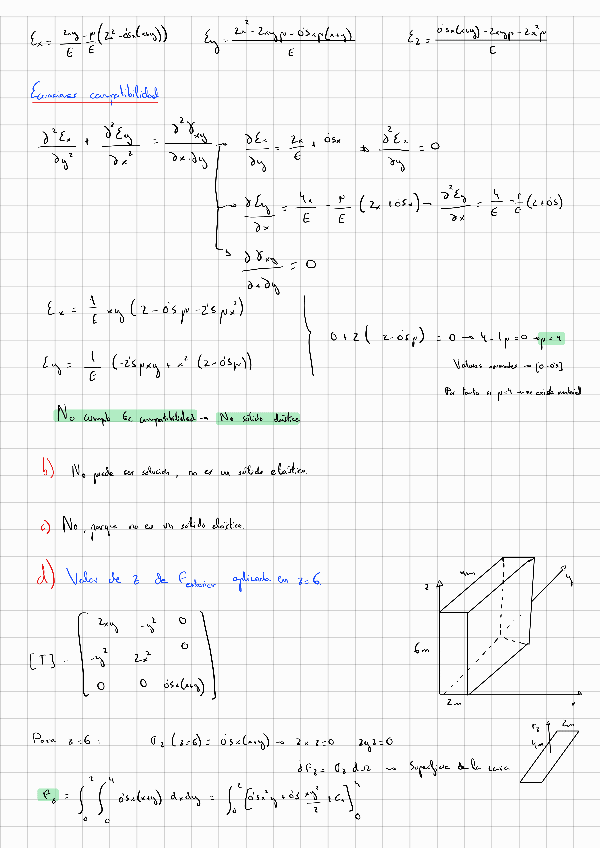 εx = 2xy/E - μ/E (2x² - 0'5x(x+y))    εy = (2x² - 2xyμ - 0'5xμ(x+y))/E    εz = (0'5x(x+y) - 2xyμ - 2x²μ)/E
Ecuaciones compatibilidad
∂²εx/∂y² + ∂²εy/∂x² = ∂²γxy/∂x·∂y → ∂εx/∂y = 2x/E + 0'5x → ∂²εx/∂y = 0
→ ∂εy/∂x = 4x/E - μ/E (2x + 0'5x) → ∂²εy/∂x = 4/E - μ/E (2+0'5)
→ ∂γxy/∂x∂y = 0
εx = 1/E xy (2 - 0'5μ - 2'5μx²)
0 + 2(2 - 0'5μ) = 0 → 4 - 1μ = 0 → μ = 4
εy = 1/E (-2'5μxy + x² (2 - 0'5μ))
Valores normales → [0-0'5]
Por tanto si μ=4 → no existe material
No cumple Ec compatibilidad → No sólido elástico
b) No puede ser solución, no es un sólido elástico.
c) No, porque no es un sólido elástico.
d) Valor de z de Fexterior aplicada en z=6.
[T] = [2xy -y² 0
-y² 2x² 0
0 0 0'5x(x+y)]
z
4m
y
6m
2m
Para z=6: σz (z=6) = 0'5x(x+y) → zxz=0 zyz=0
σz 2m
4m
dFz = σz dΩ → Superficie de la cara
F6 = ∫₀² ∫₀⁴ 0'5x(x+y) dxdy = ∫₀² [0'5x²y + 0'5 xy²/2 + Cx]₀⁴